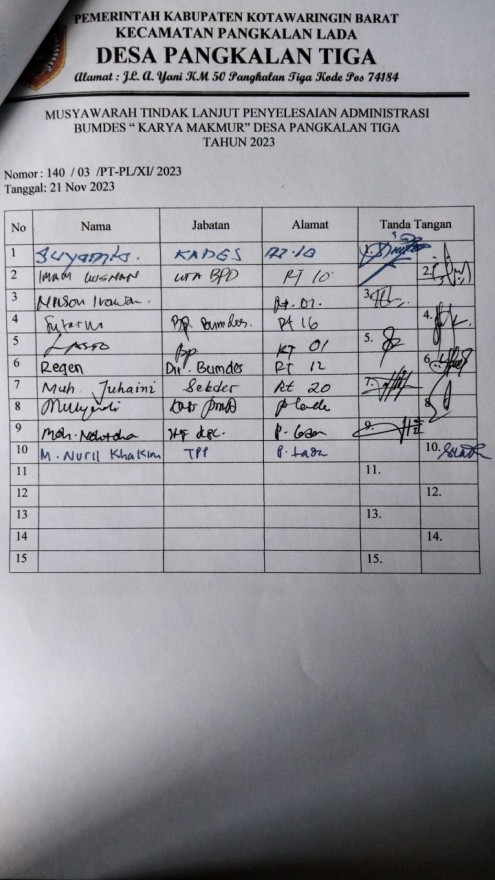 PEMERINTAH KABUPATEN KOTAWARINGIN BARAT
KECAMATAN PANGKALAN LADA
DESA PANGKALAN TIGA
Alamat : JL. A. Yani KM 50 Pangkalan Tiga Kode Pos 74184
MUSYAWARAH TINDAK LANJUT PENYELESAIAN ADMINISTRASI
BUMDES “ KARYA MAKMUR” DESA PANGKALAN TIGA
TAHUN 2023
Nomor : 140 / 03 /PT-PL/XI/ 2023
Tanggal: 21 Nov 2023
No Nama Jabatan Alamat Tanda Tangan
1 KADES RT.10 1.
2 IMAM BPD RT 10 2.
3 Irawan Rt. 01. 3.
4 Bumdes. Rt 16 4.
5 RT 01 5.
6 Regen Dir. Bumdes Rt 12 6.
7 Muh. Juhaini Sekdes Rt 20 7.
8 8.
9 Moh. 9.
10 M. Nuril Khakim TPP P. Lada 10.
11 11.
12 12.
13 13.
14 14.
15 15.